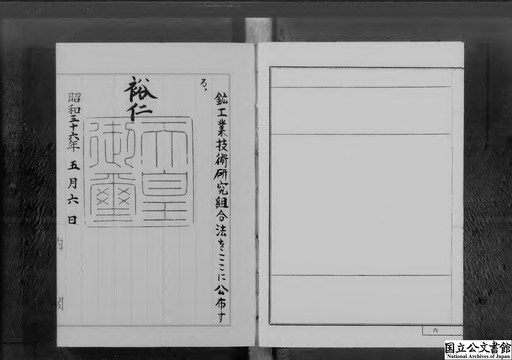 鉱工業技術研究組合法をここに公布す
る。
裕仁
天皇
御璽
昭和三十六年五月六日
内閣
内
国立公文書館
National Archives of Japan